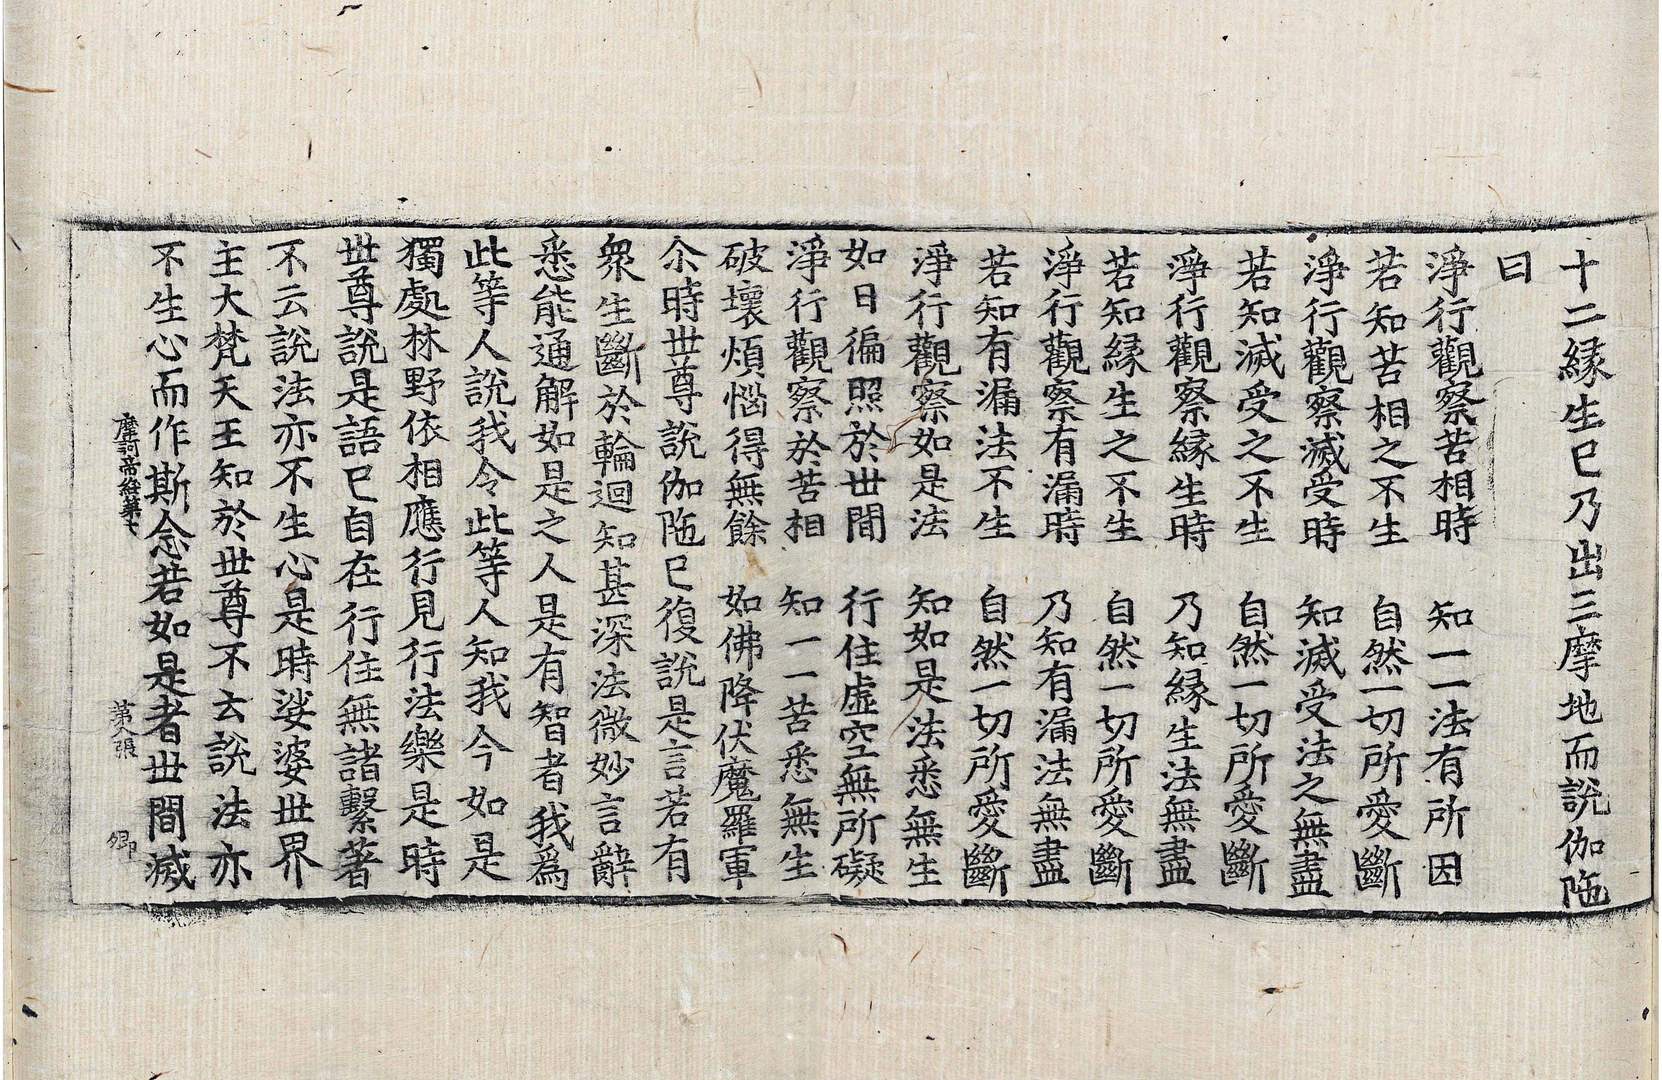 十二縁生已乃出三摩地而說伽陁
曰
淨行觀察苦相時　知一一法有所因
若知苦相之不生　自然一切所愛斷
淨行觀察滅受時　知滅受法之無盡
若知滅受之不生　自然一切所愛斷
淨行觀察縁生時　乃知縁生法無盡
若知縁生之不生　自然一切所愛斷
淨行觀察有漏時　乃知有漏法無盡
若知有漏法不生　自然一切所愛斷
淨行觀察如是法　知如是法悉無生
如日徧照於世間　行住虛空無所礙
淨行觀察於苦相　知一一苦悉無生
破壞煩惱得無餘　如佛降伏魔羅軍
尒時世尊說伽陁已復說是言若有
衆生斷於輪迴知甚深法微妙言辭
悉能通解如是之人是有智者我爲
此等人說我令此等人知我今如是
獨處林野依相應行見行法樂是時
世尊說是語已自在行住無諸繫著
不云說法亦不生心是時娑婆世界
主大梵天王知於世尊不云說法亦
不生心而作斯念若如是者世間滅
摩訶帝經第七
第八張
卿